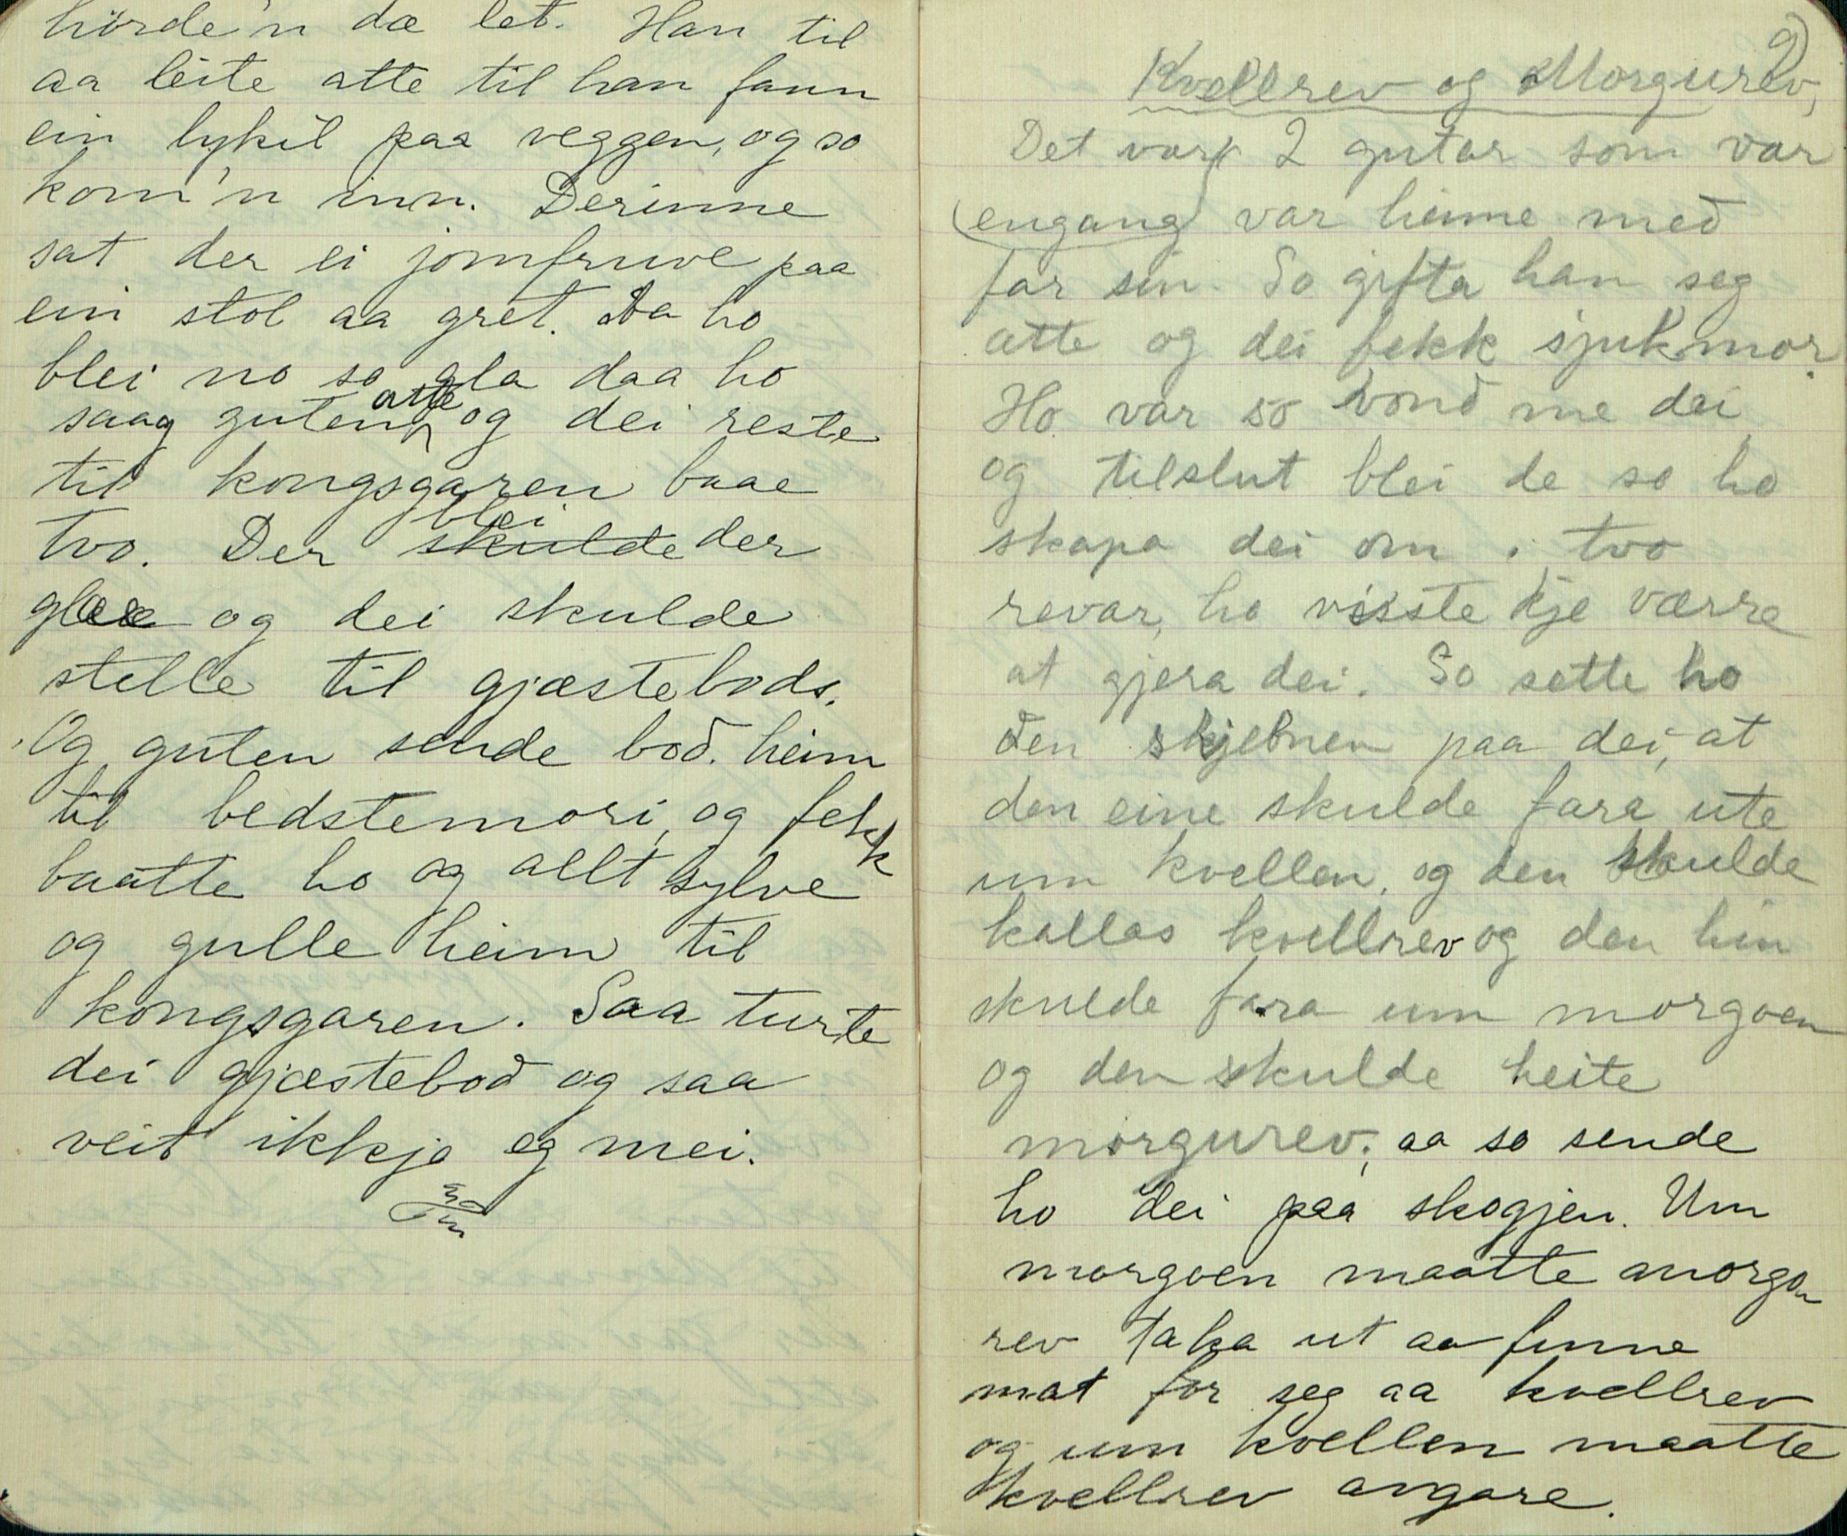 hörde'n dæ let. Han til
aa leite atte til han fann
ein lykil paa veggen, og so
kom'n inn. Derinne
sat der ei jomfruve paa
ein stol aa gret. Da ho
blei no so gla daa ho
saag guten atte og dei reste
til kongsgaren baae
tvo. Der skulde blei der
glæe og dei skulde
stelle til gjæstebods.
Og guten sende bod. heim
til bedstemori, og fekk
baatte ho og allt sylve
og gulle heim til
kongsgaren. Saa turte
dei gjæstebod og saa
veit ikkje eg mei.
9)
Kvellrev og Morgurev,
Det var 2 gutar som var
(engang) var heime med
far sin. So gifta han seg
atte og dei fekk sjukmor.
Ho var so vond me dei
og tilslut blei de so ho
skapa dei om i tvo
revar, ho visste kje værre
at gjera dei. So sette ho
den skjebnen paa dei, at
den eine skulde fara ute
um kvellen, og den skulde
kallas kvellrev og den hin
skulde fara um morgoen
og den skulde heite
morgurev; aa so sende
ho dei paa skogjen. Um
morgoen maatte morgo
rev taka ut aa finne
mat for seg aa kvellrev
og um kvellen maatte
kvellrev angare.